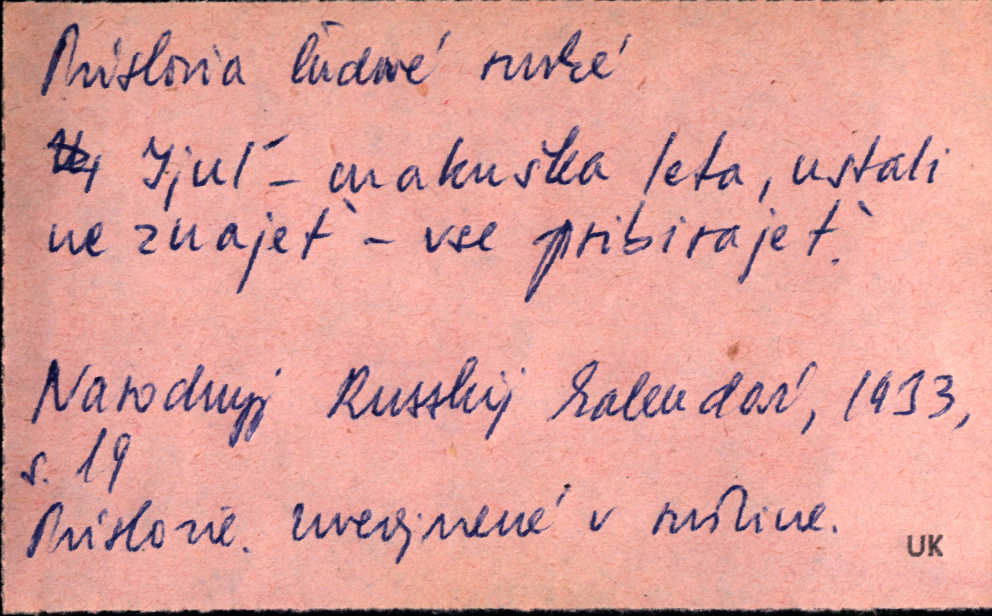 Príslovia ľudové ruské
Ijuľ – makuška leta, ustali
ne znajeť – vse pribirajeť.
Narodnyj Russkij Kalendar', 1933,
s. 19
Príslovie. Uverejnené v ruštine.
UK